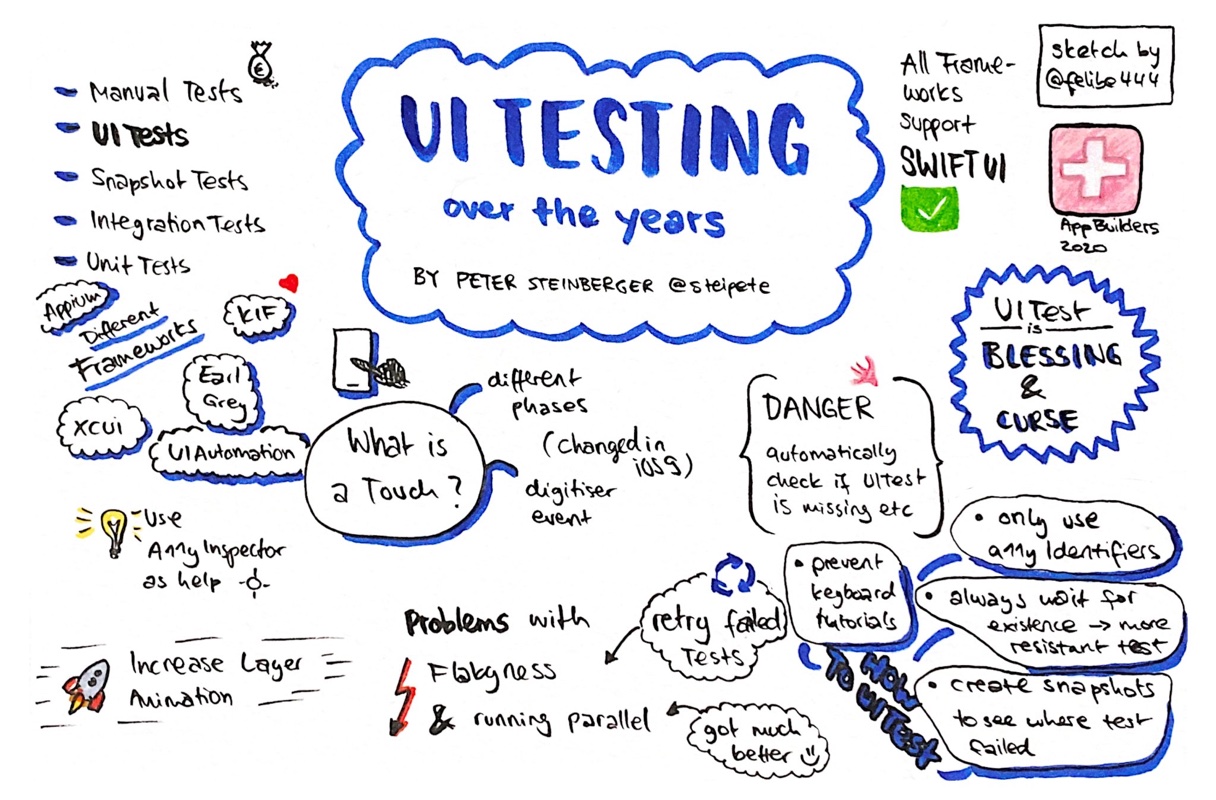 UI TESTING
over the years
BY PETER STEINBERGER @steipete
Manual Tests
€
UI Tests
Snapshot Tests
Integration Tests
Unit Tests
Appium
Different
Frameworks
KIF
Earl
Grey
XCUI
UIAutomation
Use
A11y Inspector
as help
Increase Layer
Animation
What is
a Touch?
different
phases
(changed in
iOS9)
digitiser
event
Problems with
Flakyness
& running parallel
retry failed
Tests
got much
better
All Frame-
works
support
SWIFT UI
sketch by
@felibe444
AppBuilders
2020
UI Test
is
BLESSING
&
CURSE
DANGER
automatically
check if UITest
is missing etc
HOW
TO UITest
• prevent
keyboard
tutorials
• only use
a11y Identifiers
• always wait for
existence → more
resistant test
• create snapshots
to see where test
failed